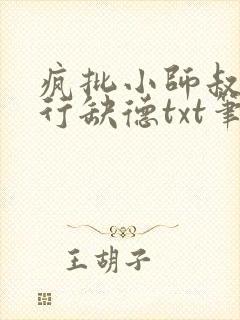 疯批小師叔
行缺德txt筆
王胡子